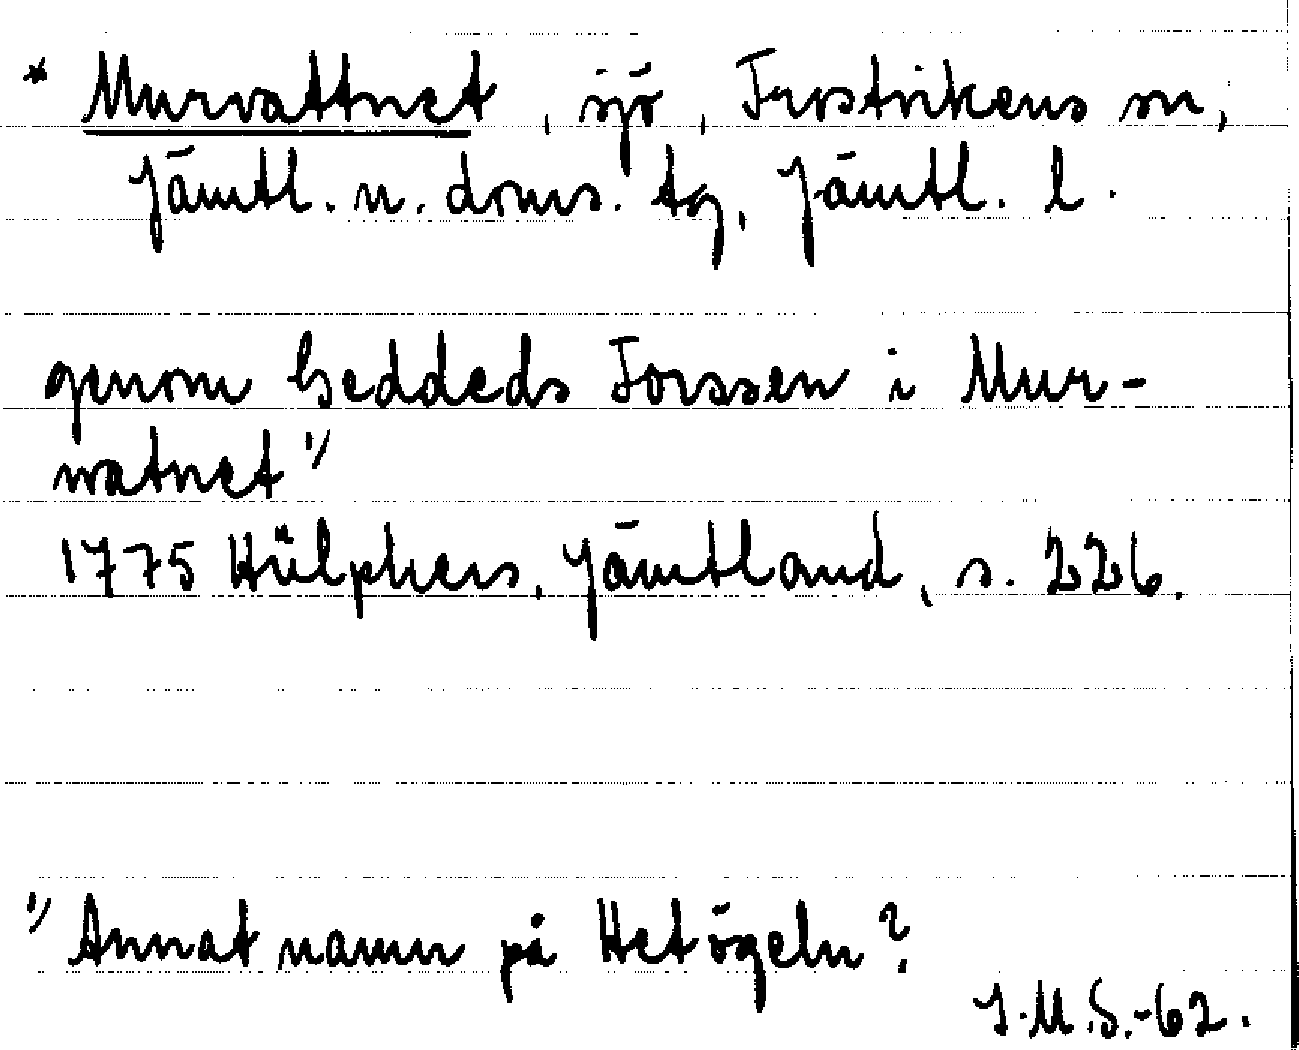 * Murvattnet, sjö, Frostvikens sn,
Jämtl. n. doms. tg, Jämtl. l.
genom Geddeds Forssen i Mur-
watnet 1)
1775 Hülphers, Jämtland, s. 226.
1) Annat namn på Hetögeln?
I.M.S.-62.